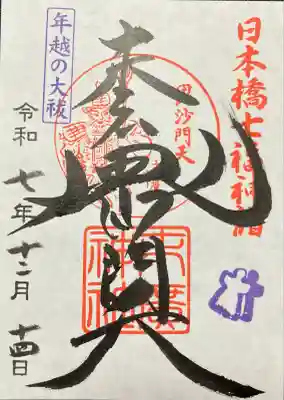 日本橋七福神詣
年越の大祓
毘沙門天
末廣神社
令和七年十二月十四日